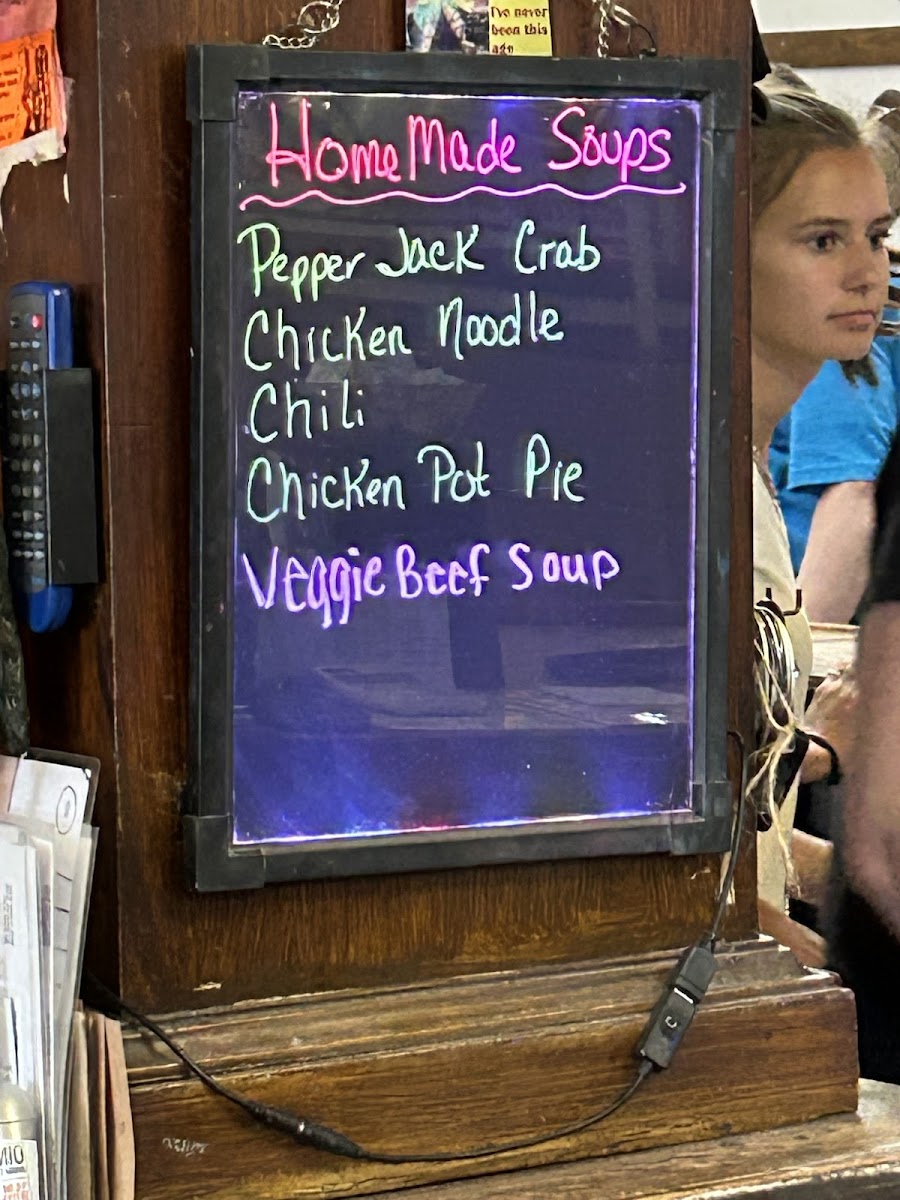 I've never
been this
age
HomeMade Soups
Pepper Jack Crab
Chicken Noodle
Chili
Chicken Pot Pie
Veggie Beef Soup